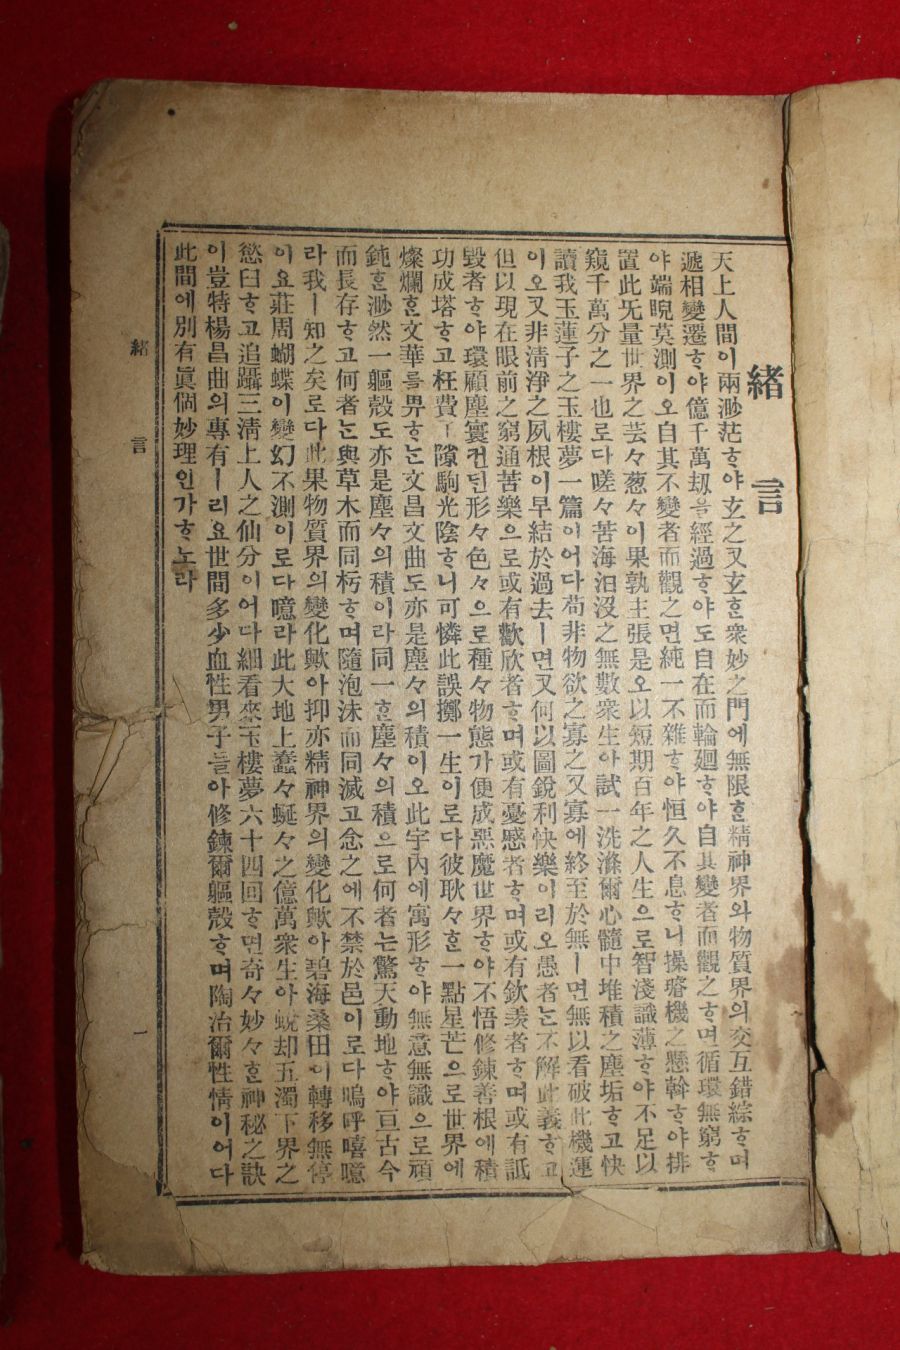 緖言
天上人間이兩渺茫ᄒᆞ야玄之又玄ᄒᆞᆫ衆妙之門에無限ᄒᆞᆫ精神界와物質界의交互錯綜ᄒᆞ며
遞相變遷ᄒᆞ야億千萬刼을經過ᄒᆞ야도自在而輪廻ᄒᆞ야自其變者而觀之ᄒᆞ면循環無窮ᄒᆞ
야端睨莫測이오自其不變者而觀之면純一不雜ᄒᆞ야恒久不息ᄒᆞ니操璿機之懸斡ᄒᆞ야排
置此旡量世界之芸々葱々이果孰主張是오以短期百年之人生으로智淺識薄ᄒᆞ야不足以
窺千萬分之一也로다嗟々苦海汨沒之無數衆生아試一洗滌爾心髓中堆積之塵垢ᄒᆞ고快
讀我玉蓮子之玉樓夢一篇이어다苟非物欲之寡之又寡에終至於無ㅣ면無以看破此機運
이오又非淸淨之夙根이早結於過去ㅣ면又何以圖銳利快樂이리오愚者는不解此義ᄒᆞ고
但以現在眼前之窮通苦樂으로或有歡欣者ᄒᆞ며或有憂慼者ᄒᆞ며或有欽羨者ᄒᆞ며或有詆
毀者ᄒᆞ야環顧塵寰컨딘形々色々으로種々物態가便成惡魔世界ᄒᆞ야不悟修鍊善根에積
功成塔ᄒᆞ고枉費ㅣ隙駒光陰ᄒᆞ니可憐此誤擲一生이로다彼耿々ᄒᆞᆫ一點星芒으로世界에
燦爛ᄒᆞᆫ文華를畀ᄒᆞ는文昌文曲도亦是塵々의積이오此宇內에寓形ᄒᆞ야無意無識으로頑
鈍ᄒᆞᆫ渺然一軀殼도亦是塵々의積이라同一ᄒᆞᆫ塵々의積으로何者는驚天動地ᄒᆞ야亘古今
而長存ᄒᆞ고何者는與草木而同朽ᄒᆞ며隨泡沫而同滅고念之에不禁於邑이로다嗚呼嘻噫
라我ㅣ知之矣로다此果物質界의變化歟아抑亦精神界의變化歟아碧海桑田이轉移無停
이요莊周蝴蝶이變幻不測이로다噫라此大地上蠢々蜒々之億萬衆生아蛻却五濁下界之
慾臼ᄒᆞ고追躡三淸上人之仙分이어다細看來玉樓夢六十四回ᄒᆞ면奇々妙々ᄒᆞᆫ神秘之訣
이豈特楊昌曲의專有ㅣ리요世間多少血性男子들아修鍊爾軀殼ᄒᆞ며陶冶爾性情이어다
此間에別有眞個妙理인가ᄒᆞ노라
緖言 一